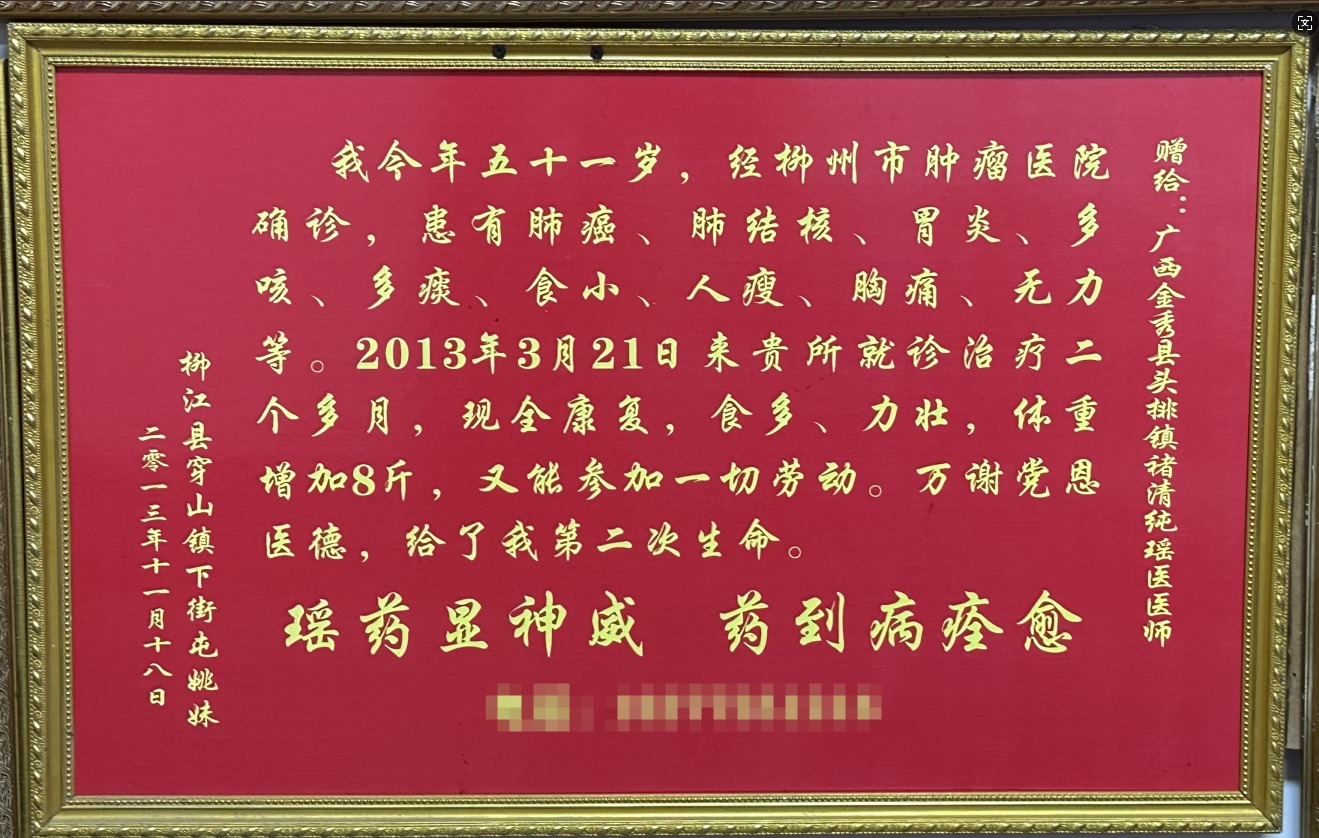 赠给：广西金秀县头排镇诸清纯瑶医医师
我今年五十一岁，经柳州市肿瘤医院
确诊，患有肺癌、肺结核、胃炎、多
咳、多痰、食小、人瘦、胸痛、无力
等。2013年3月21日来贵所就诊治疗二
个多月，现全康复，食多、力壮，体重
增加8斤，又能参加一切劳动。万谢党恩
医德，给了我第二次生命。
瑶药显神威 药到病痊愈
柳江县穿山镇下街屯姚妹
二零一三年十一月十八日